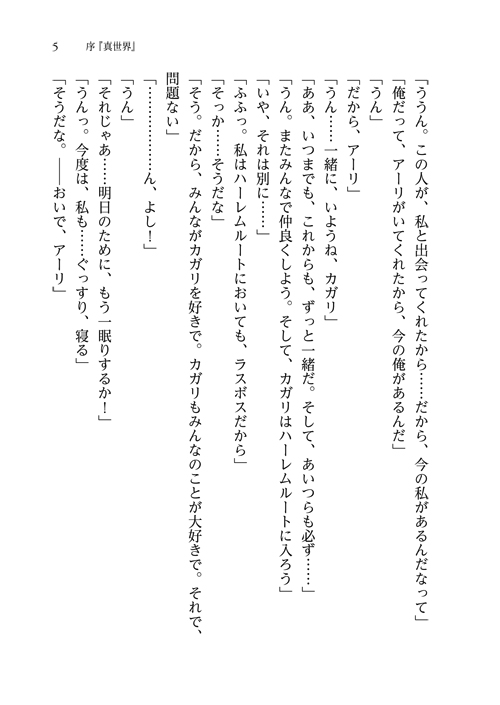 5　序『真世界』
「ううん。この人が、私と出会ってくれたから……だから、今の私があるんだなって」
「俺だって、アーリがいてくれたから、今の俺があるんだ」
「うん」
「だから、アーリ」
「うん……一緒に、いようね、カガリ」
「ああ、いつまでも、これからも、ずっと一緒だ。そして、あいつらも必ず……」
「うん。またみんなで仲良くしよう。そして、カガリはハーレムルートに入ろう」
「いや、それは別に……」
「ふふっ。私はハーレムルートにおいても、ラスボスだから」
「そっか……そうだな」
「そう。だから、みんながカガリを好きで。カガリもみんなのことが大好きで。それで、
問題ない」
「………………ん、よし！」
「うん」
「それじゃあ……明日のために、もう一眠りするか！」
「うんっ。今度は、私も……ぐっすり、寝る」
「そうだな。――おいで、アーリ」